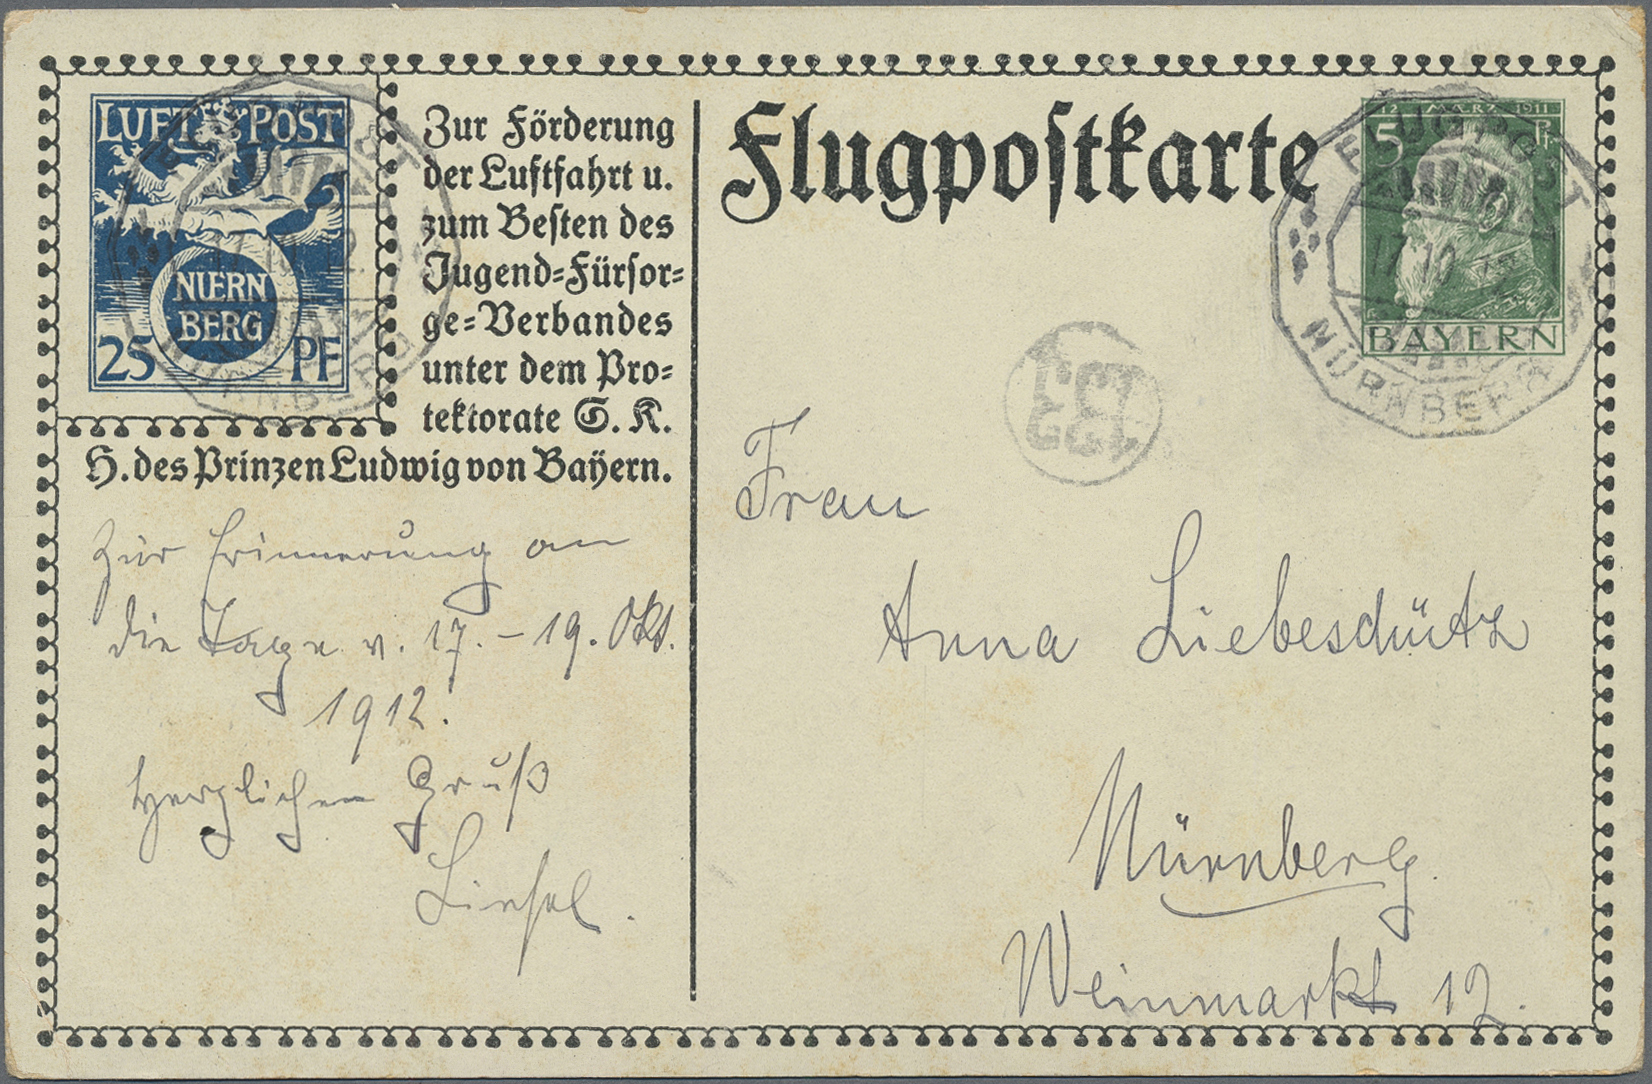 LUFT POST
NUERN
BERG
25 PF
Zur Förderung
der Luftfahrt u.
zum Besten des
Jugend=Fürsor=
ge=Verbandes
unter dem Pro=
tektorate S. K.
H. des Prinzen Ludwig von Bayern.
Zur Erinnerung an
die Tage v. 17. – 19. Okt.
1912.
Herzlichen Gruß
Liesel.
Flugpostkarte
12. MÄRZ 1911
5 Pf
BAYERN
FLUGPOST
17 10
NÜRNBERG
Frau
Anna Liebesdütz
Nürnberg.
Weinmarkt 12.